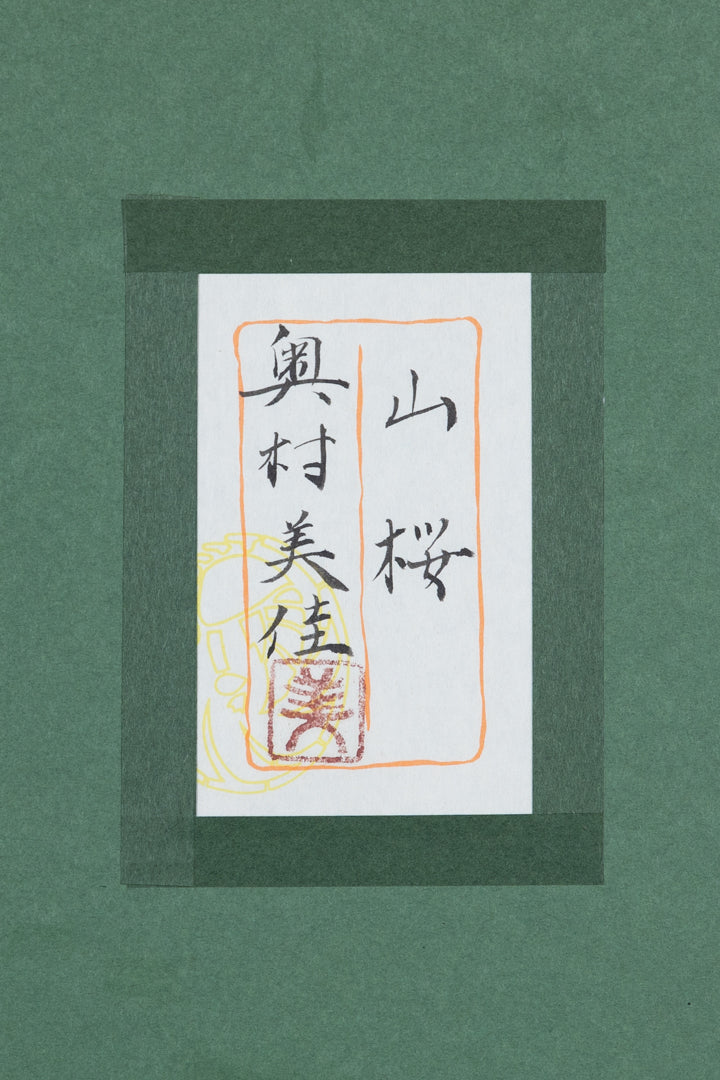 山桜
奥村美佳
美